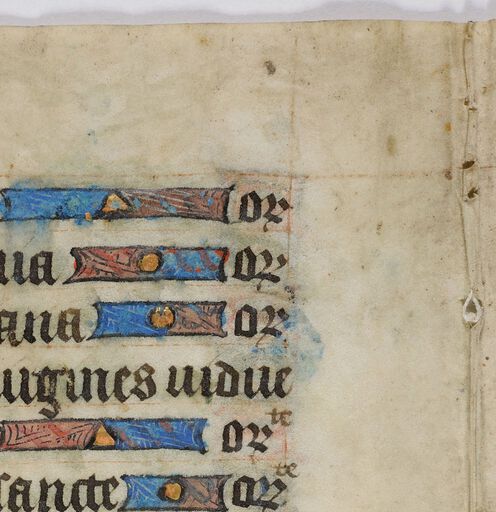 or
ua or
ana or
uirgines uidue
or te
sancte or te